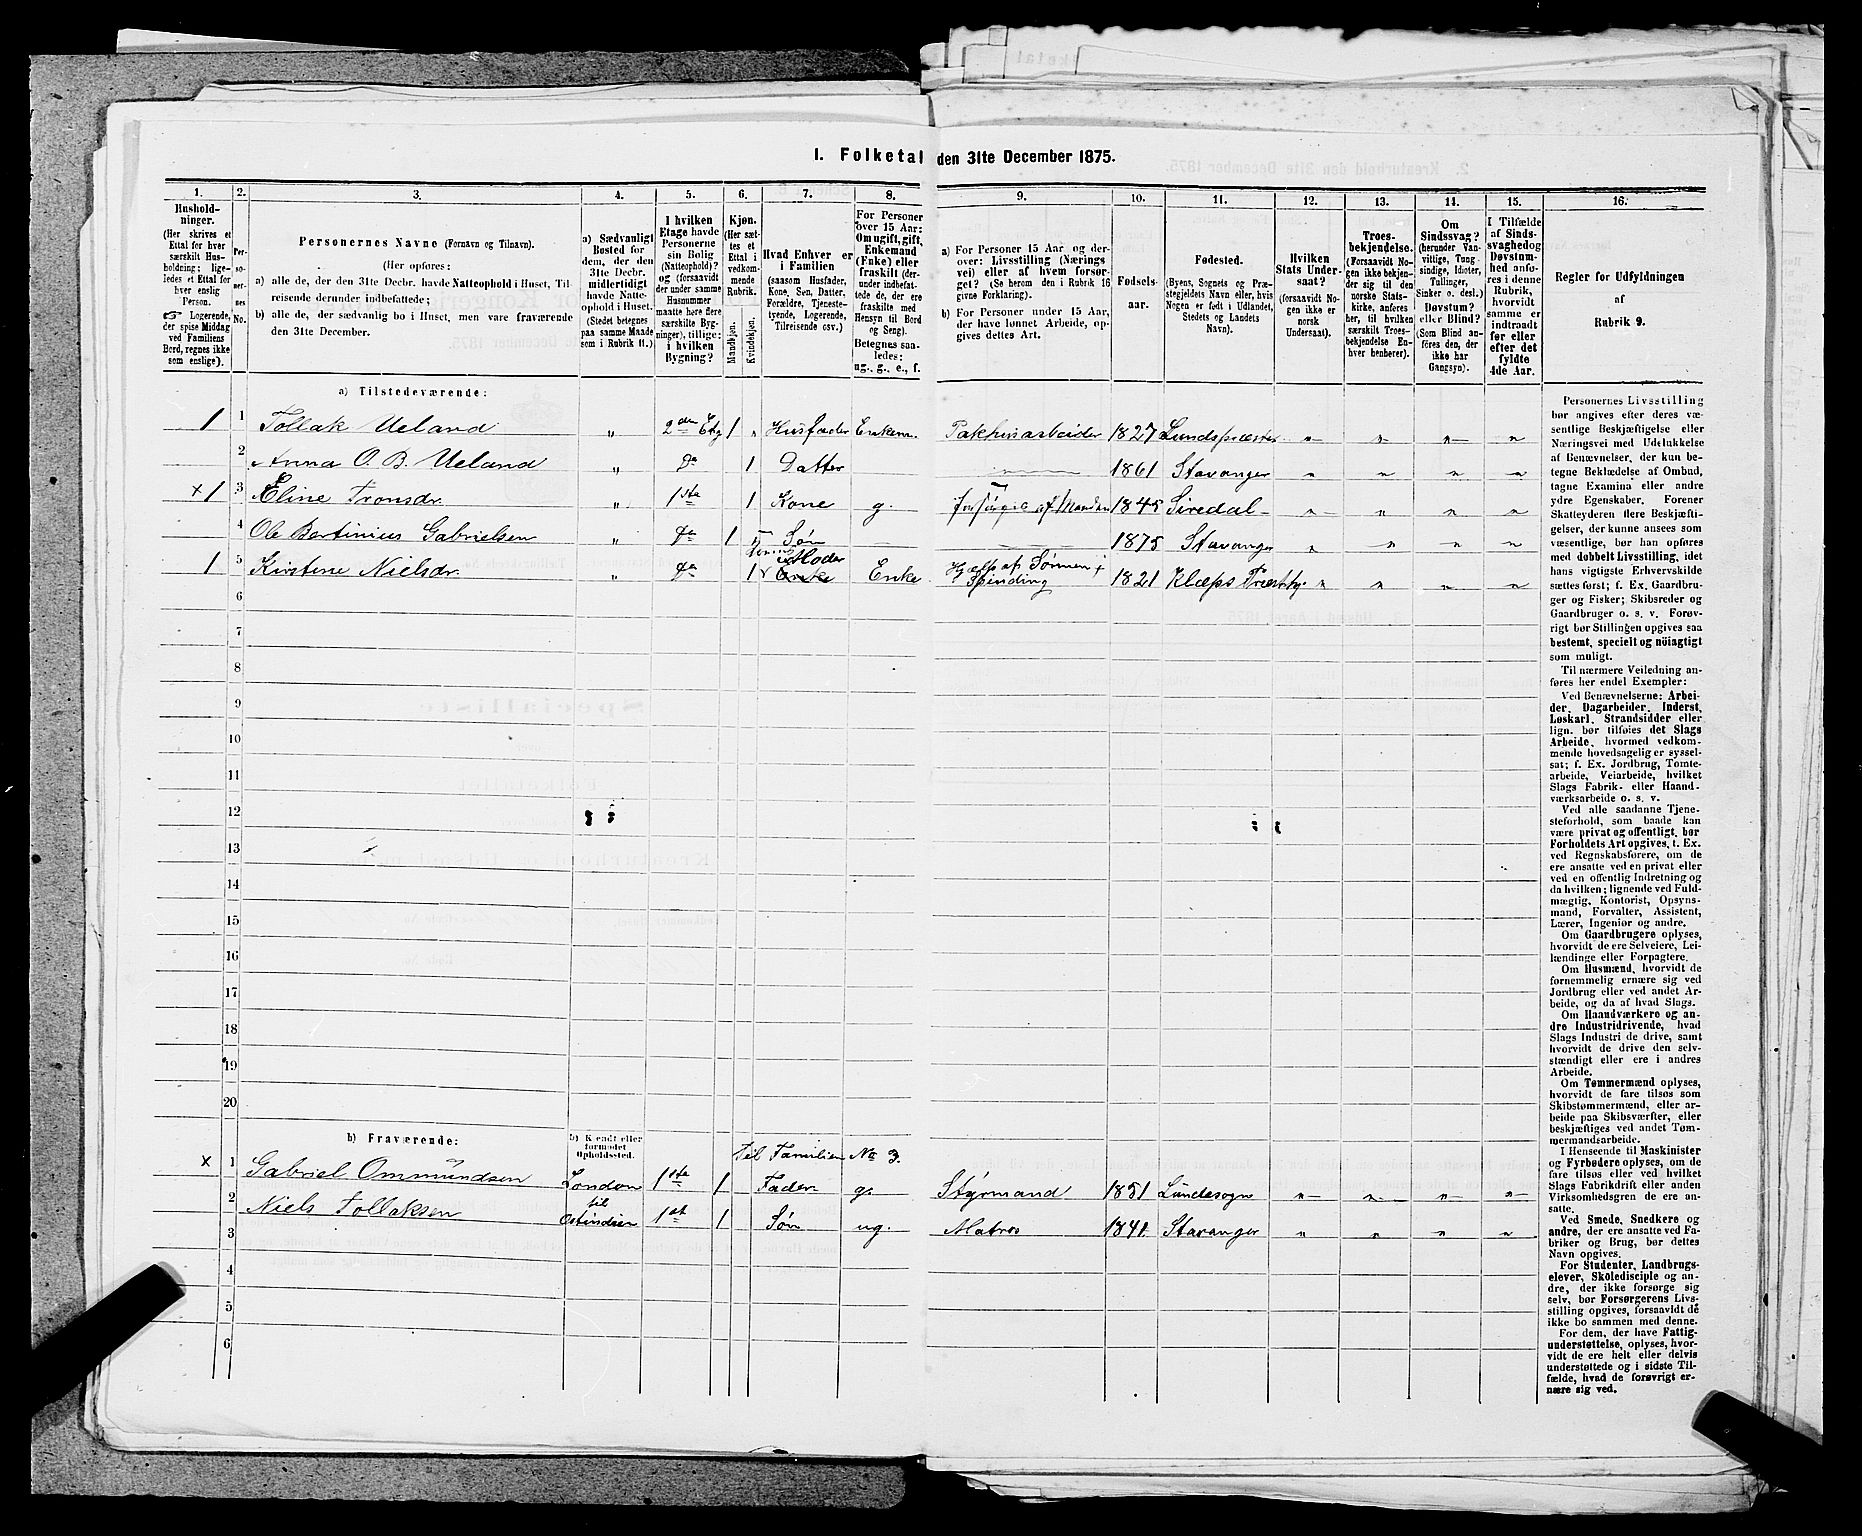 1. Folketal den 31te December 1875.
1. 2. 3. 4. 5. 6. 7. 8. 9. 10. 11. 12. 13. 14. 15. 16.
Husholdninger.
(Her skrives et Ettal for hver særskilt Husholdning; ligeledes et Ettal for hver enslig Person.
☞ Logerende, der spise Middag ved Familiens Bord, regnes ikke som enslige).
Personernes No.
Personernes Navne (Fornavn og Tilnavn).
(Her opføres:
a) alle de, der den 31te Decbr. havde Natteophold i Huset, Tilreisende derunder indbefattede;
b) alle de, der sædvanlig bo i Huset, men vare fraværende den 31te December.
a) Sædvanligt Bosted for dem, der den 31te Decbr. midlertidigt havde Natteophold i Huset.
(Stedet betegnes paa samme Maade som i Rubrik 11.)
I hvilken Etage havde Personerne sin Bolig (Natteophold)?
(forsaavidt der under samme Husnummer maatte høre flere særskilte Bygninger), tillige: i hvilken Bygning?
Kjøn.
(Her sættes et Ettal i vedkommende Rubrik.
Mandkjøn. Kvindekjøn.
Hvad Enhver er i Familien
(saasom Husfader, Kone, Søn, Datter, Forældre, Tjenestetyende, Logerende, Tilreisende osv.)
For Personer over 15 Aar: Om ugift, gift, Enkemand (Enke) eller fraskilt (derindbefattede de, der ere fraskilte med Hensyn til Bord og Seng).
Betegnes saaledes: ug., g., e., f.
a) For Personer 15 Aar og derover: Livsstilling (Næringsvei) eller af hvem forsørget? (Se herom den i Rubrik 16 givne Forklaring).
b) For Personer under 15 Aar, der have lønnet Arbeide, opgives dettes Art.
Fødselsaar.
Fødested.
(Byens, Sognets og Præstegjeldets Navn eller, hvis Nogen er født i Udlandet, Stedets og Landets Navn).
Hvilken Stats Undersaat?
(forsaavidt Nogen ikke er norsk Undersaat).
Troesbekjendelse.
(Forsaavidt Nogen ikke bekjender sig til den norske Statskirke, anføres her, til hvilken særskilt Troesbekjendelse Enhver henhører).
Om Sindssvag?
(herunder Vanvittige, Tungsindige, Idioter, Tullinger, Sinker o. desl.)
Døvstum? eller Blind?
(Som Blind anføres den, der ikke har Gangsyn).
I Tilfælde af Sindssvaghed og Døvstumhed anføres i denne Rubrik, hvorvidt samme er indtraadt før eller efter det fyldte 4de Aar.
Regler for Udfyldningen
af
Rubrik 9.
a) Tilstedeværende:
1 1 Tollak Ueland " 2den Etg 1 " Husfader Enkem. Pakhusarbeider 1827 Lundspræstg.
2 Anna O. B. Ueland " do 1 Datter 1861 Stavanger
x 1 3 Eline Tronsdr. " 1ste 1 Kone g. forsørges af Manden 1845 Siredal
4 Ole Bertinius Gabrielsen " do 1 Søn 1875 Stavanger
1 5 Kirstine Nielsdr. " do 1 Moder Enke Enke Hjælp af Sønnen + Spinding 1821 Klæps Præstg.
6
7
8
9
10
11
12
13
14
15
16
17
18
19
20
b) Fraværende: b) Kjendt eller formodet Opholdssted.
Til Familien No 3.
x 1 Gabriel Ommundsen London 1ste 1 Fader g. Styrmand 1851 Lundesogn
2 Niels Tollaksen til Ostindien 1st 1 Søn ug. Matros 1841 Stavanger
3
4
5
6
Personernes Livsstilling
bør angives efter deres væ-
sentlige Beskjæftigelse eller
Næringsvei med Udelukkelse
af Benævnelser, der kun be-
tegne Beklædelse af Ombud,
tagne Examina eller andre
ydre Egenskaber. Forener
Skatteyderen flere Beskjæfti-
gelser, der kunne ansees som
væsentlige, bør han opføres
med dobbelt Livsstilling, idet
hans vigtigste Erhvervskilde
sættes først; f. Ex. Gaardbru-
ger og Fisker; Skibsreder og
Gaardbruger o. s. v. Forøv-
rigt bør Stillingen opgives saa
bestemt, specielt og nöiagtigt
som muligt.
Til nærmere Veiledning an-
føres her endel Exempler:
Ved Benævnelserne: Arbei-
der, Dagarbeider, Inderst,
Løskarl, Strandsidder eller
lign. bør tilføies det Slags
Arbeide, hvormed vedkom-
mende hovedsagelig er syssel-
sat; f. Ex. Jordbrug, Tomte-
arbeide, Veiarbeide, hvilket
Slags Fabrik- eller Haand-
værksarbeide o. s. v.
Ved alle saadanne Tjene-
steforhold, som baade kan
være privat og offentligt, bør
Forholdets Art opgives, f. Ex.
ved Regnskabsførere, om de
ere ansatte ved en privat eller
ved en offentlig Indretning og
da hvilken; lignende ved Fuld-
mægtig, Kontorist, Opsyns-
mand, Forvalter, Assistent,
Lærer, Ingeniør og andre.
Om Gaardbrugere oplyses,
hvorvidt de ere Selveiere, Lei-
lændinge eller Forpagtere.
Om Husmænd, hvorvidt de
fornemmelig ernære sig ved
Jordbrug eller ved andet Ar-
beide, og da af hvad Slags.
Om Haandværkere og an-
dre Industridrivende, hvad
Slags Industri de drive, samt
hvorvidt de drive den selv-
stændigt eller ere i andres
Arbeide.
Om Tømmermænd oplyses,
hvorvidt de fare tilsøs som
Skibstømmermænd, eller ar-
beide paa Skibsværfter, eller
beskjæftiges ved andet Tøm-
mermandsarbeide.
I Henseende til Maskinister
og Fyrbødere oplyses, om de
fare tilsøs eller ved hvilket
Slags Fabrikdrift eller anden
Virksomhedsgren de ere an-
satte.
Ved Smede, Snedkere og
andre, der ere ansatte ved Fa-
briker og Brug, bør dettes
Navn opgives.
For Studenter, Landbrugs-
elever, Skoledisciple og an-
dre, der ikke forsørge sig
selv, bør Forsørgerens Livs-
stilling opgives, forsaavidt de
ikke bo sammen med denne.
For dem, der have Fattig-
understøttelse, oplyses, hvor-
vidt de ere helt eller delvis
understøttede og i sidste Til-
fælde, hvad de forøvrigt er-
nære sig ved.